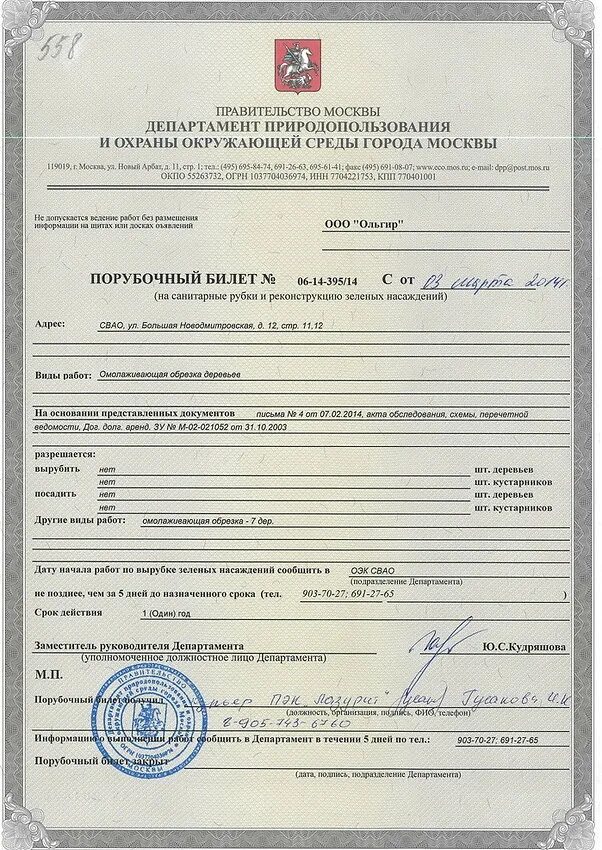 558
ПРАВИТЕЛЬСТВО МОСКВЫ
ДЕПАРТАМЕНТ ПРИРОДОПОЛЬЗОВАНИЯ
И ОХРАНЫ ОКРУЖАЮЩЕЙ СРЕДЫ ГОРОДА МОСКВЫ
119019, г. Москва, ул. Новый Арбат, д. 11, стр. 1; тел.: (495) 695-84-74, 691-26-63, 695-61-41; факс (495) 691-08-07; www.eco.mos.ru; e-mail: dpp@post.mos.ru
ОКПО 55263732, ОГРН 1037704036974, ИНН 7704221753, КПП 770401001
Не допускается ведение работ без размещения
информации на щитах или досках объявлений
ООО "Ольгир"
ПОРУБОЧНЫЙ БИЛЕТ № 06-14-395/14 С от 03 марта 2014г.
(на санитарные рубки и реконструкцию зеленых насаждений)
Адрес: СВАО, ул. Большая Новодмитровская, д. 12, стр. 11,12
Виды работ: Омолаживающая обрезка деревьев
На основании представленных документов письма № 4 от 07.02.2014, акта обследования, схемы, перечетной
ведомости, Дог. долг. аренд. ЗУ № М-02-021052 от 31.10.2003
разрешается:
вырубить нет шт. деревьев
нет шт. кустарников
посадить нет шт. деревьев
нет шт. кустарников
Другие виды работ: омолаживающая обрезка - 7 дер.
Дату начала работ по вырубке зеленых насаждений сообщить в ОЭК СВАО
(подразделение Департамента)
не позднее, чем за 5 дней до назначенного срока (тел. 903-70-27; 691-27-65 )
Срок действия 1 (Один) год
Заместитель руководителя Департамента Ю.С.Кудряшова
(уполномоченное должностное лицо Департамента)
М.П.
Порубочный билет получил курьер ПЭК Лазурит Гусакова И.К
(должность, организация, подпись, ФИО, телефон)
8-905-743-6760
Информацию о выполнении работ сообщить в Департамент в течении 5 дней по тел.: 903-70-27; 691-27-65
Порубочный билет закрыт
(дата, подпись, подразделение Департамента)
ПРАВИТЕЛЬСТВО
МОСКВЫ
ОГРН 1037704036974